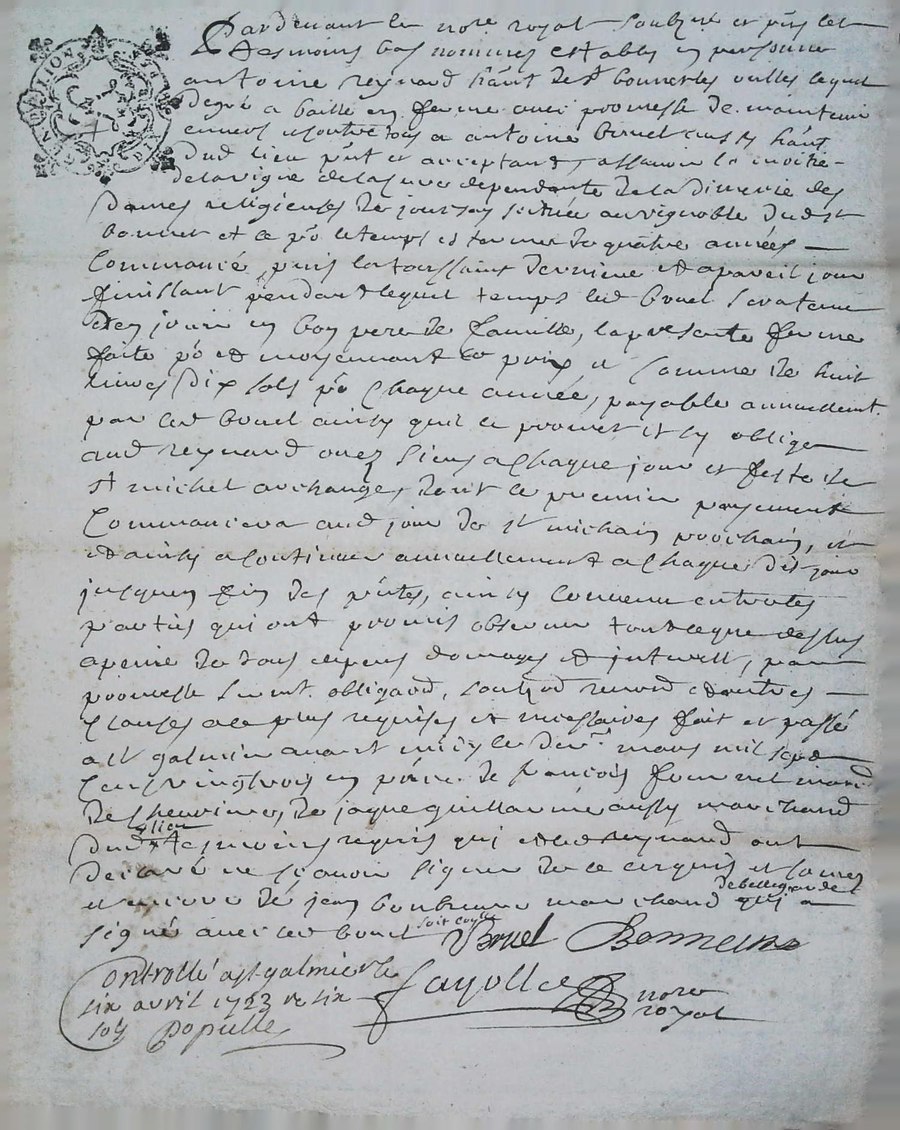 Pardevant le nore royal soubzné et pnts les
tesmoins bas nommés estably en personne
antoine reynaud hant de st bonnet les oulles lequel
degré a baillé en ferme avec promesse de maintenir
envers et contre tous a antoine bruel aussy hant
dud lieu pnt et acceptant, assavoir la moitié
de la vigne de la dependante de la dimerie des
dames religieuses de jourcey située au vignoble dudt st
bonnet et ce po le temps et terme de quatre années
Commancé puis la toussaint derniere et a pareil jour
finissant pendant lequel temps led bruel sera tenu
d'en jouir en bon pere de famille, la presente ferme
faite po et moyennant le prix et somme de huit
livres dix sols po Chaque année, payable annuellemt
par led bruel ainsy quil le promet et sy oblige
aud reynaud ou es siens a Chaque jour et feste de
st michel archange, dont le premier payement
Commancera aud jour de st michail prochain, et
et ainsy a Continuer annuellement a Chaque dit jour
jusques fin des pntes, ainsy Convenu entre les
parties qui ont promis observer tout ce que dessus
a peine de tous depens domages et intherests, par
promesse serment. obligaōn, soubzōn renonōn et autres
Clauses a ce plus requises et necessaires fait et passé
a st galmier avant midy le dern. mars mil sept
Cens vingt trois en pnce de françois fournel march
de Chevrieres, de jaque guillaume aussy marchand
dud lieu tesmoins requis qui et led reynaud ont
declaré ne sçavoir signer de ce enquis et sommés
et encore de jean bonnemain marchand de bellegarde qui a
signé avec led bruel soit Coullé
Bruel Bonnemain
Controllé a st galmier le
six avril 1723 re six
sols Populle
Fayolle nore
royal